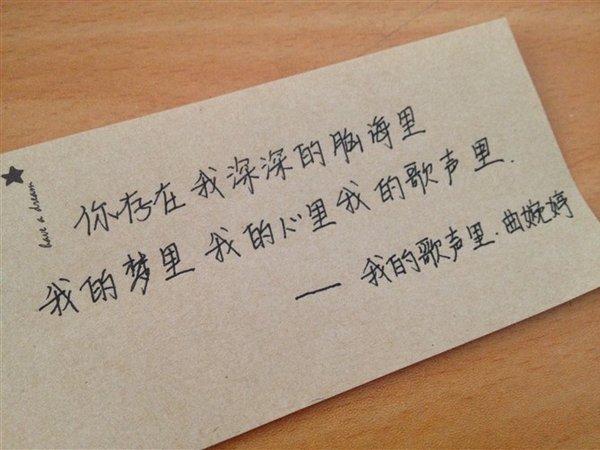 have a dream
你存在我深深的脑海里
我的梦里 我的心里 我的歌声里.
—— 我的歌声里·曲婉婷